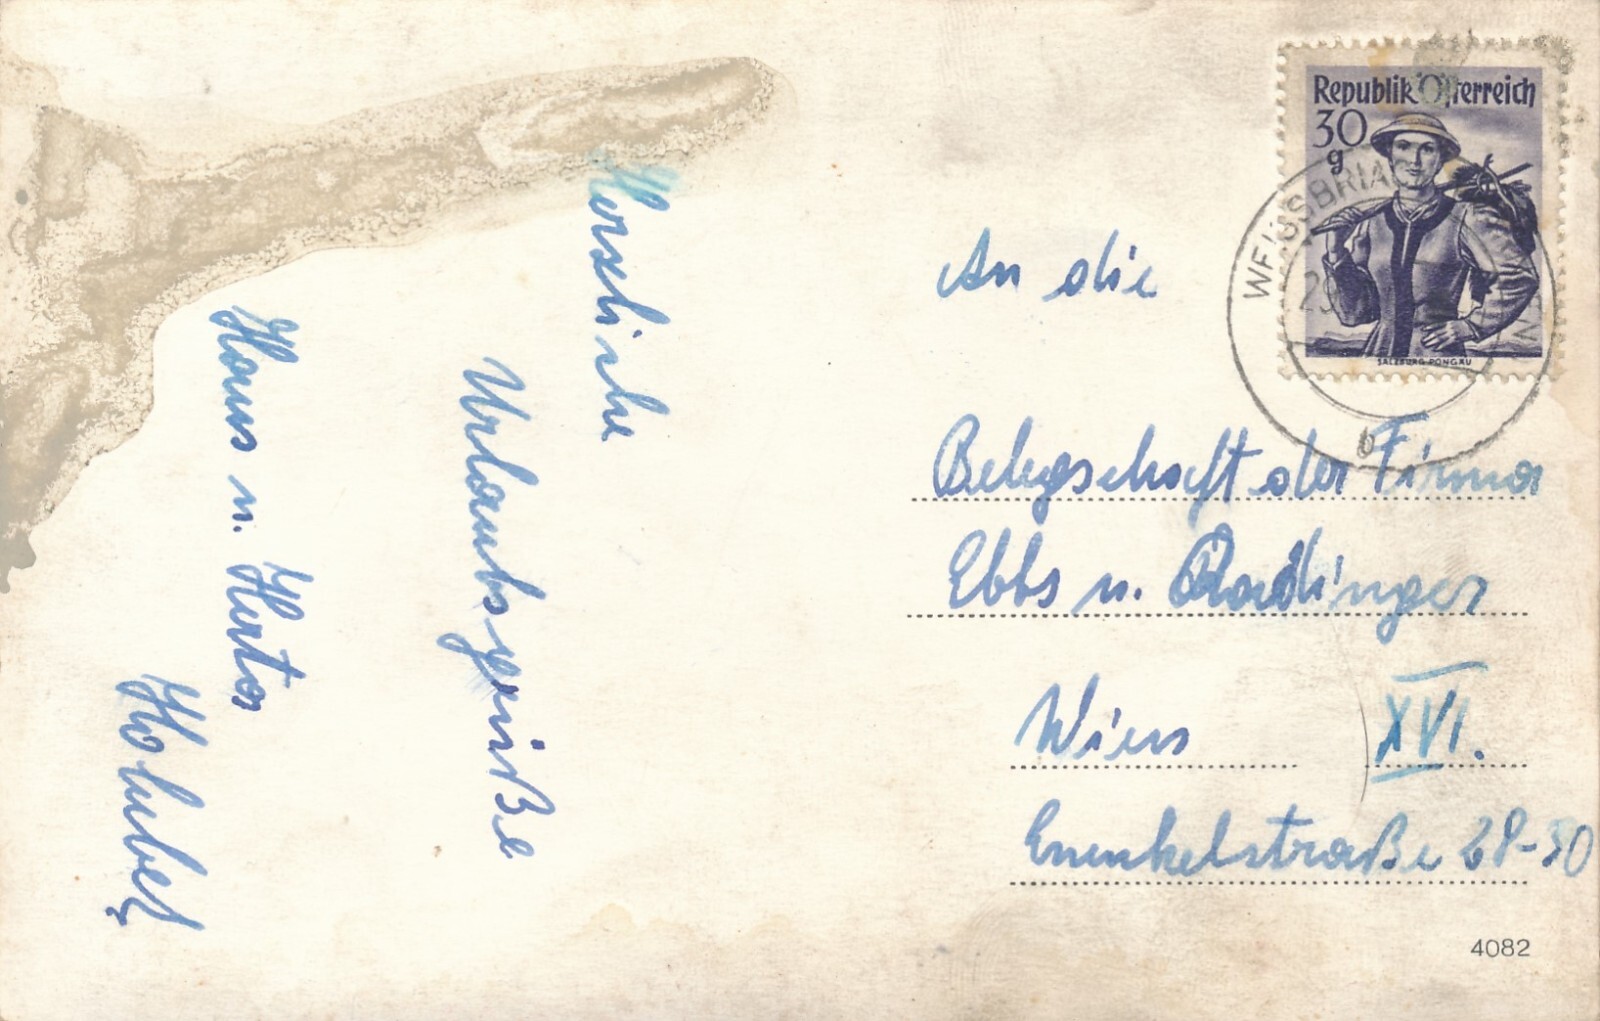 Herzliche
Urlaubsgrüße
Hans u. Herta
Holubek
Republik Österreich
30
g
SALZBURG PONGAU
WEISSBRIACH
b
An die
Belegschaft der Firma
Ebbs u. Radinger
Wien XVI.
Enenkelstraße 28-30
4082